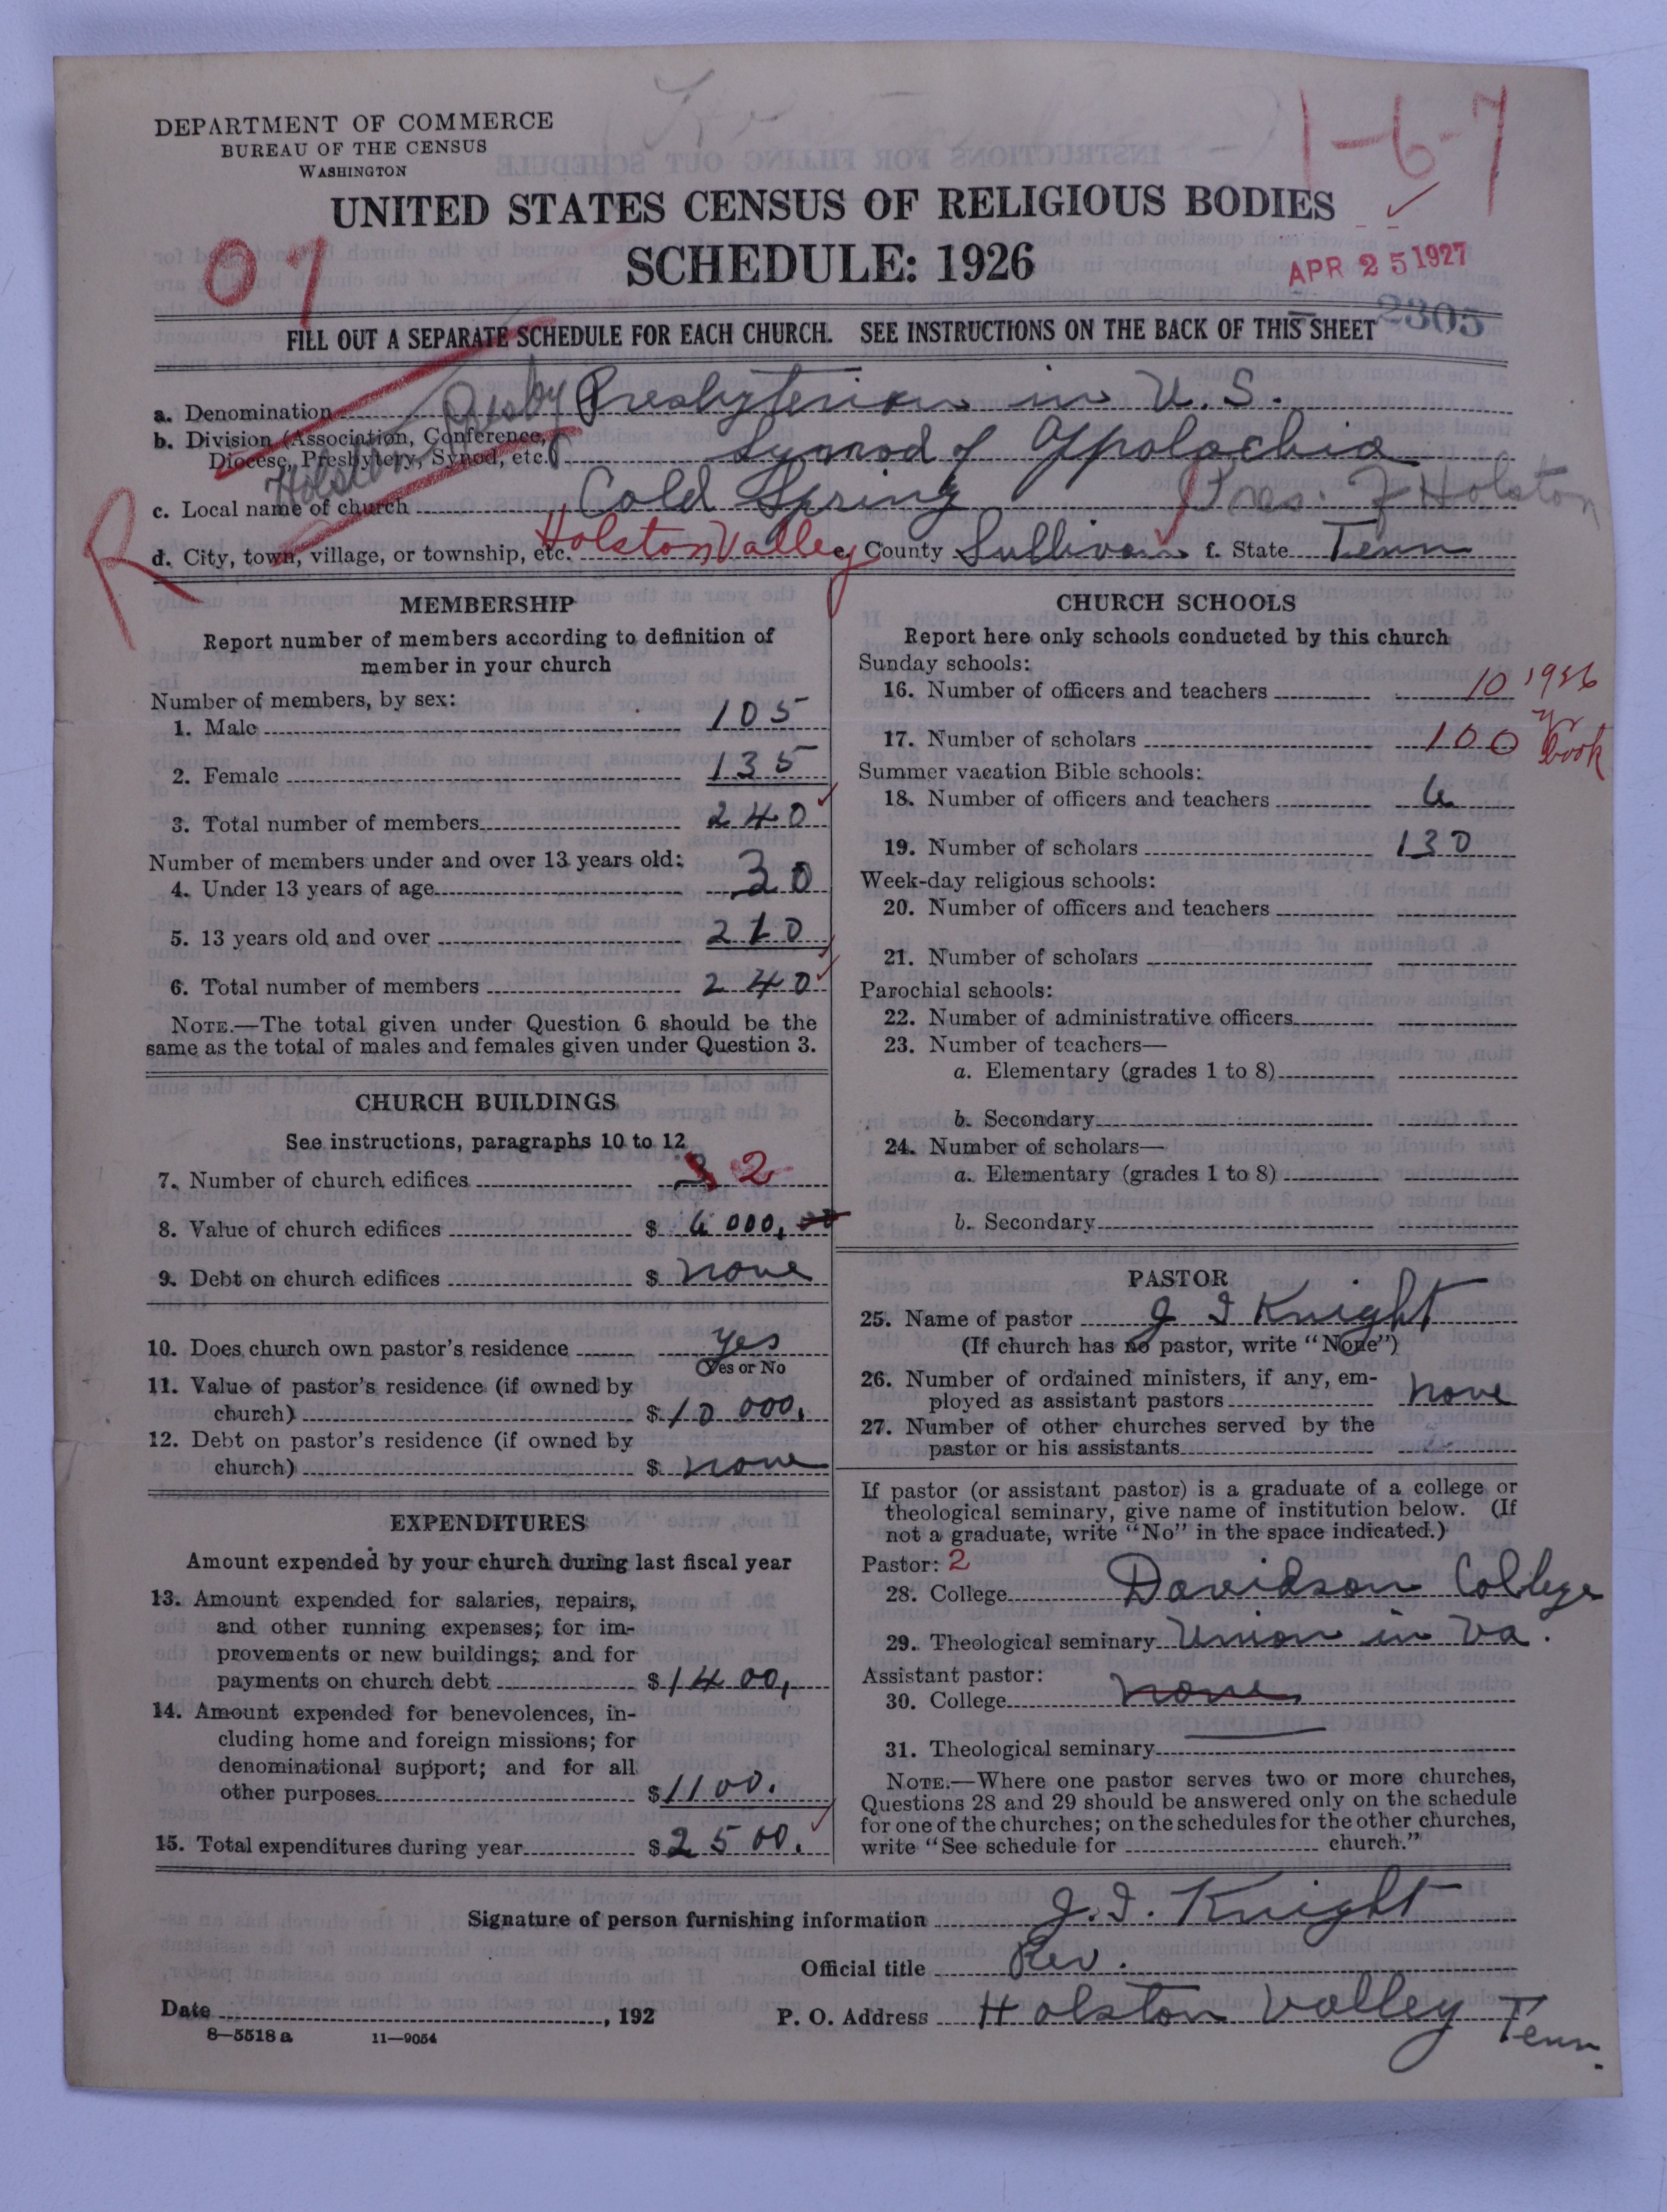 DEPARTMENT OF COMMERCE
BUREAU OF THE CENSUS
WASHINGTON
1-6-7
UNITED STATES CENSUS OF RELIGIOUS BODIES
SCHEDULE: 1926
07
APR 25 1927
2305
FILL OUT A SEPARATE SCHEDULE FOR EACH CHURCH. SEE INSTRUCTIONS ON THE BACK OF THIS SHEET
a. Denomination Presbyterian in U.S.
b. Division (Association, Conference,
Diocese, Presbytery, Synod, etc.) Synod of Appalachia
Holston Presby
c. Local name of church Cold Spring Pres. of Holston
R
d. City, town, village, or township, etc. Holston Valley e. County Sullivan f. State Tenn
MEMBERSHIP
Report number of members according to definition of
member in your church
Number of members, by sex:
1. Male 105
2. Female 135
3. Total number of members 240
Number of members under and over 13 years old:
4. Under 13 years of age 30
5. 13 years old and over 210
6. Total number of members 240
NOTE.—The total given under Question 6 should be the
same as the total of males and females given under Question 3.
CHURCH BUILDINGS
See instructions, paragraphs 10 to 12
7. Number of church edifices 2
8. Value of church edifices $ 6 000,
9. Debt on church edifices $ none
10. Does church own pastor's residence yes
Yes or No
11. Value of pastor's residence (if owned by
church) $ 10 000.
12. Debt on pastor's residence (if owned by
church) $ none
EXPENDITURES
Amount expended by your church during last fiscal year
13. Amount expended for salaries, repairs,
and other running expenses; for im-
provements or new buildings; and for
payments on church debt $ 1400,
14. Amount expended for benevolences, in-
cluding home and foreign missions; for
denominational support; and for all
other purposes $ 1100.
15. Total expenditures during year $ 2500.
CHURCH SCHOOLS
Report here only schools conducted by this church
Sunday schools:
16. Number of officers and teachers 10 1926
17. Number of scholars 100 yr book
Summer vacation Bible schools:
18. Number of officers and teachers 6
19. Number of scholars 130
Week-day religious schools:
20. Number of officers and teachers
21. Number of scholars
Parochial schools:
22. Number of administrative officers
23. Number of teachers—
a. Elementary (grades 1 to 8)
b. Secondary
24. Number of scholars—
a. Elementary (grades 1 to 8)
b. Secondary
PASTOR
25. Name of pastor J I Knight
(If church has no pastor, write "None")
26. Number of ordained ministers, if any, em-
ployed as assistant pastors none
27. Number of other churches served by the
pastor or his assistants
If pastor (or assistant pastor) is a graduate of a college or
theological seminary, give name of institution below. (If
not a graduate, write "No" in the space indicated.)
Pastor: 2
28. College Davidson College
29. Theological seminary Union in Va.
Assistant pastor:
30. College none
31. Theological seminary
NOTE.—Where one pastor serves two or more churches,
Questions 28 and 29 should be answered only on the schedule
for one of the churches; on the schedules for the other churches,
write "See schedule for church."
Signature of person furnishing information J. I. Knight
Official title Rev.
Date , 192
P. O. Address Holston Valley Tenn.
8—5518 a 11—9054